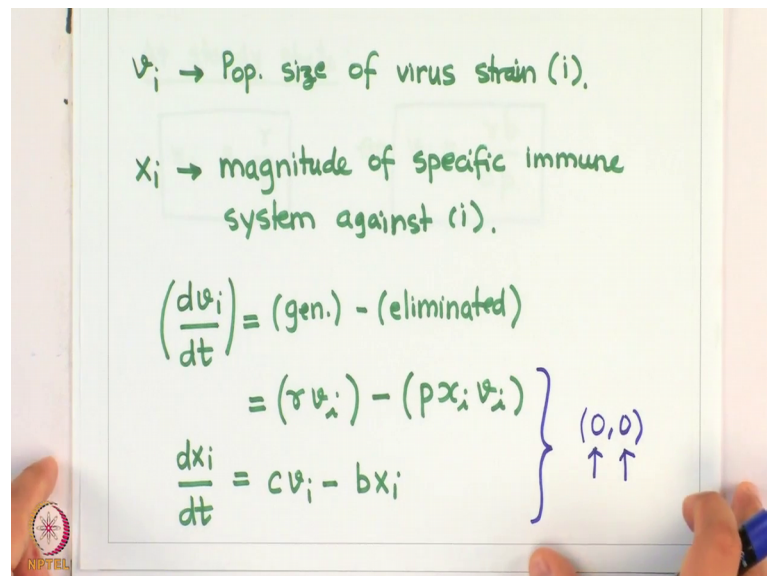 v_i → Pop. size of virus strain (i).
x_i → magnitude of specific immune
system against (i).
(dv_i/dt) = (gen.) - (eliminated)
= (r v_i) - (p x_i v_i)
dx_i/dt = c v_i - b x_i
(0,0)
↑ ↑
NPTEL